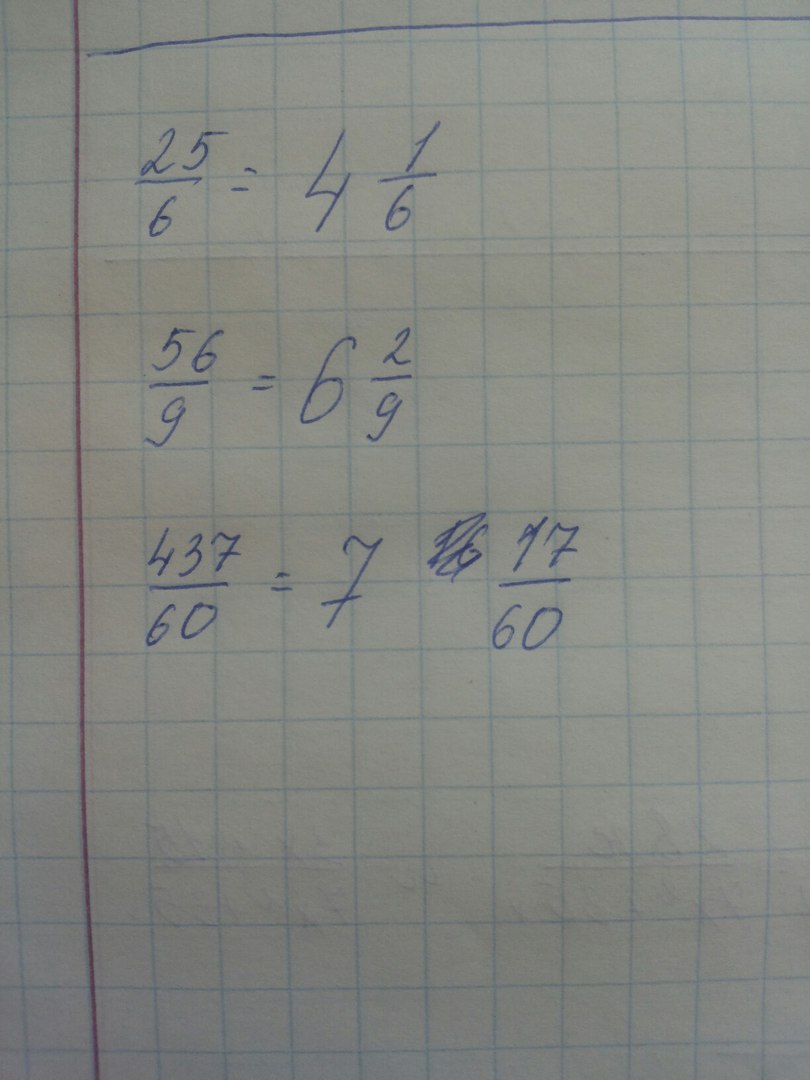 25/6 = 4 1/6
56/9 = 6 2/9
437/60 = 7 17/60